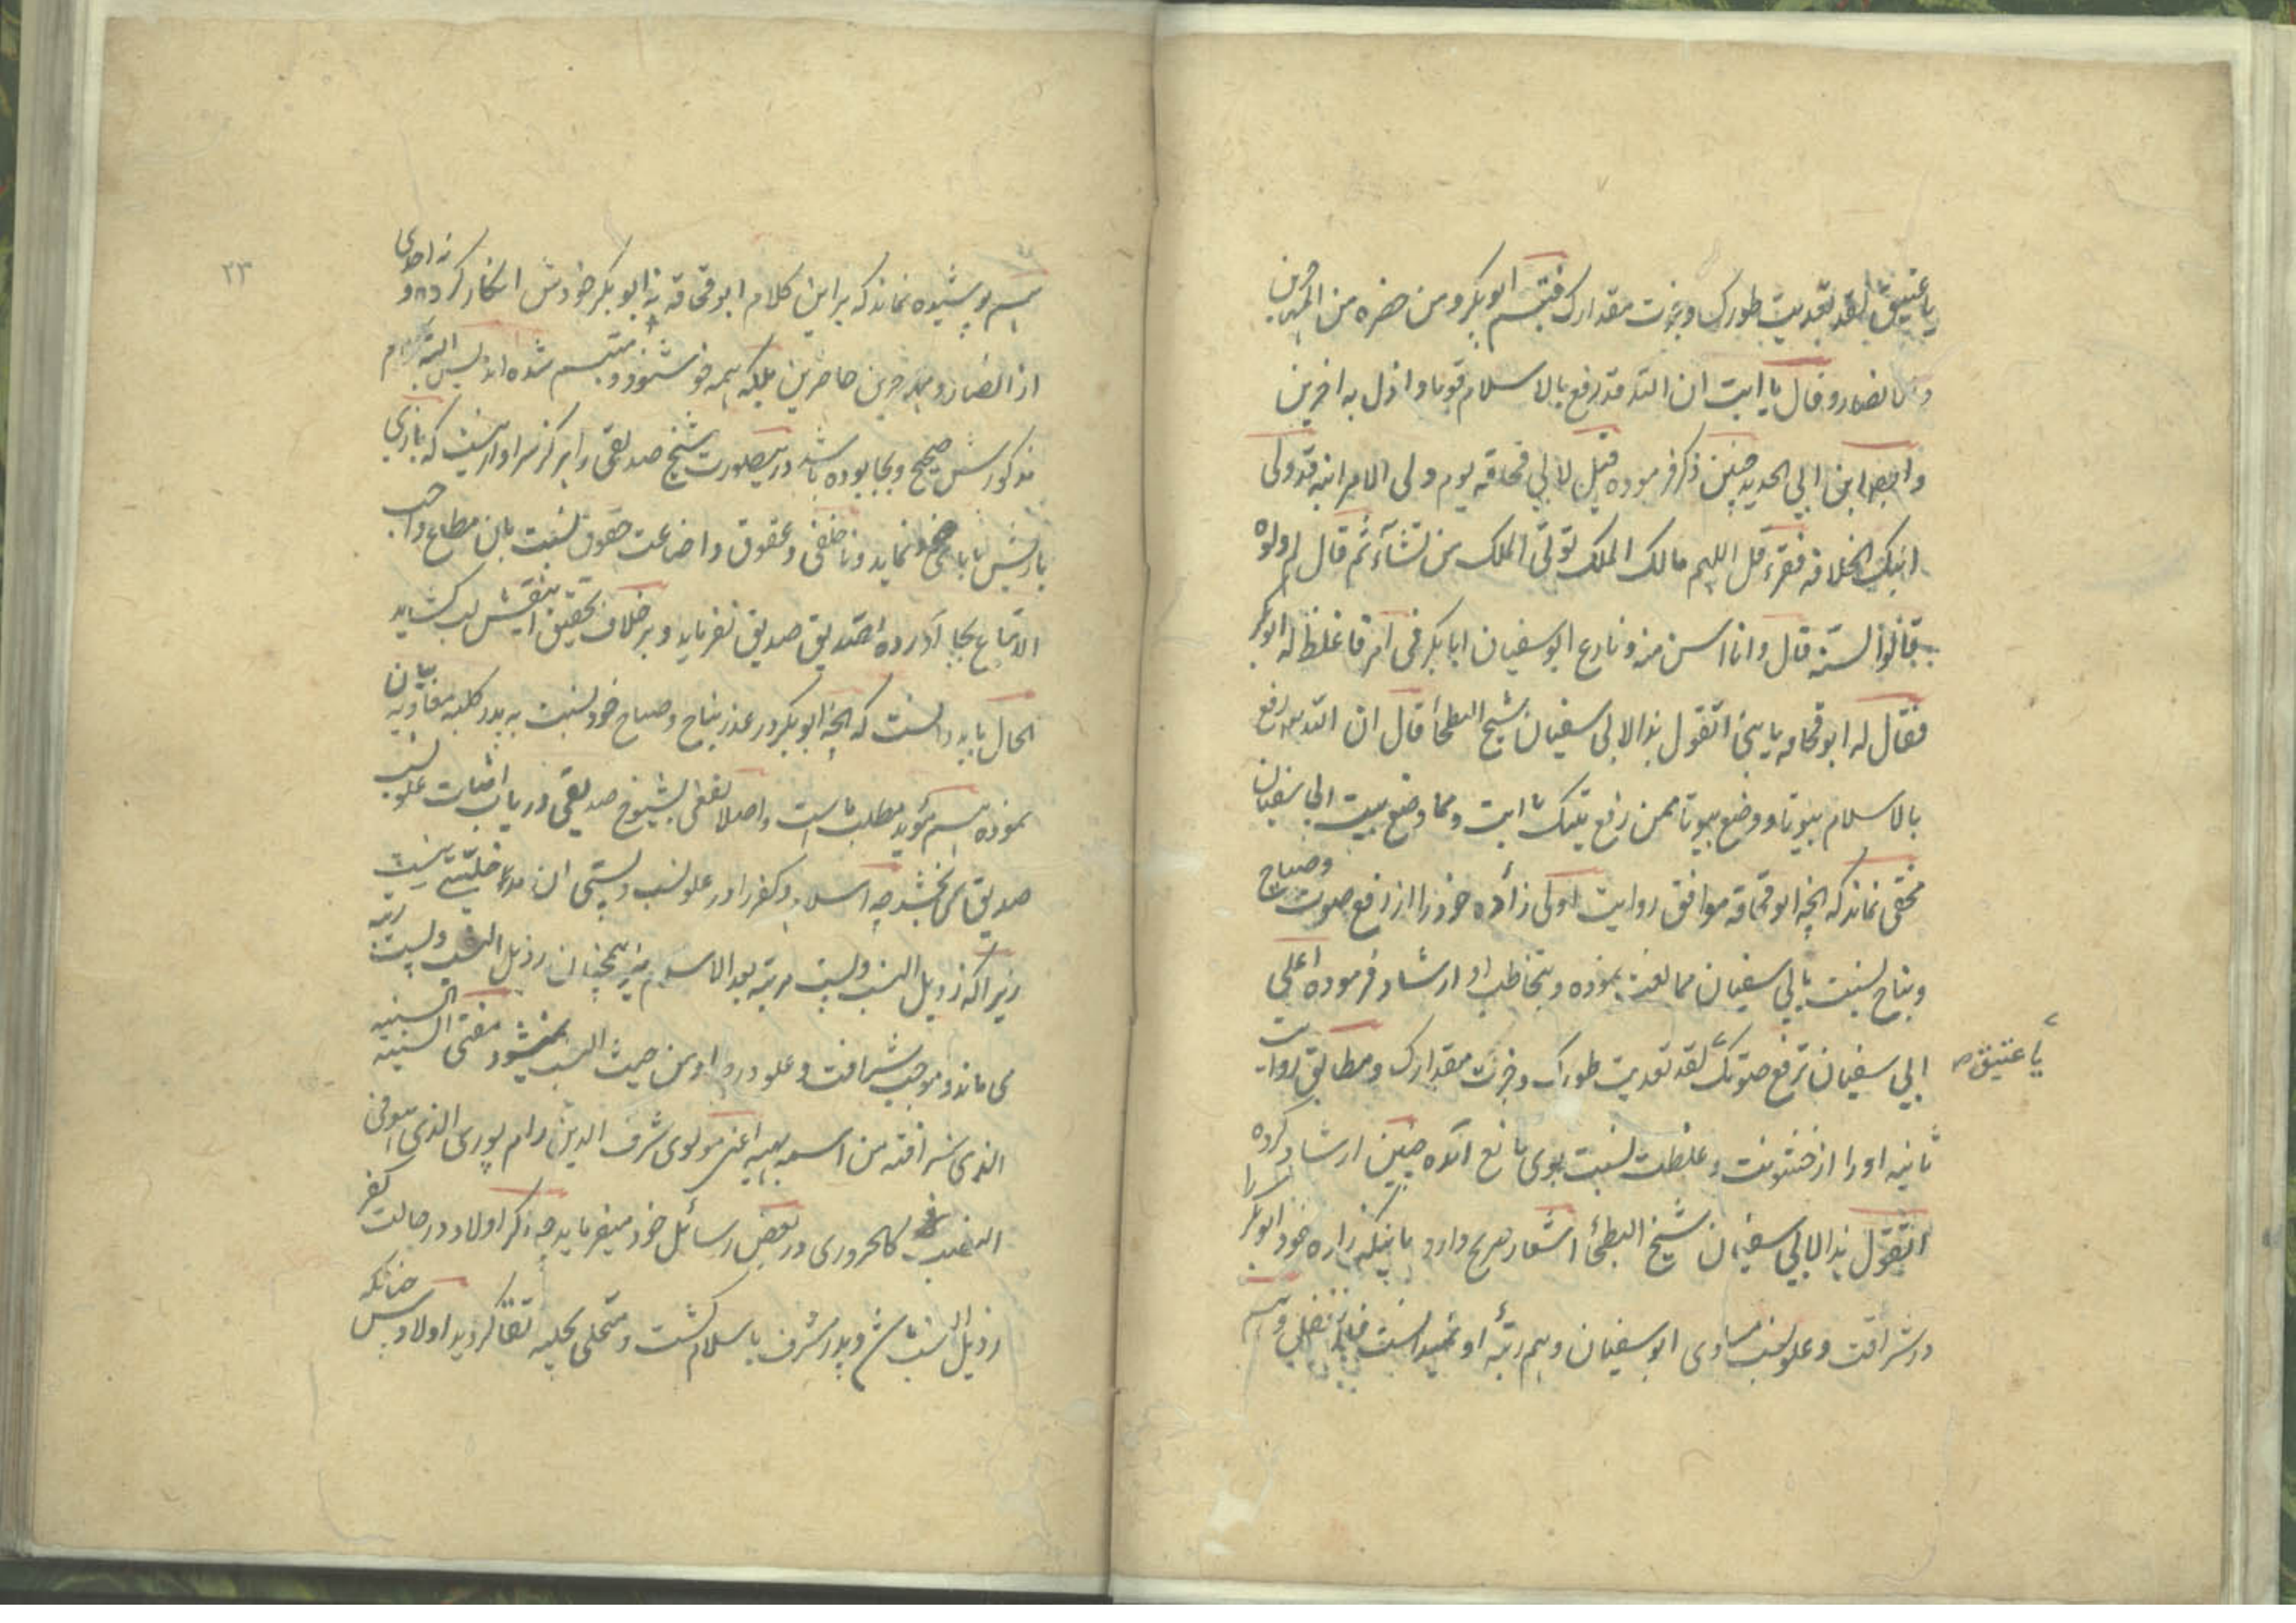 یا عتیق لقد تعدیت طورک وجزت مقدارک فتبسم ابوبکر ومن حضره من المهاجرین
والانصار وقال یا ابت ان الله قد رفع بالاسلام قوما واذل به اخرین
وایضا ابن ابی الحدید چنین ذکر فرموده قیل لابی قحافه یوم ولی الامر ابنه قد ولی
ابنک الخلافه فقرء قل اللهم مالک الملک تؤتی الملک من تشآء ثم قال لم ولوه
قالوا لسنه قال وانا اسن منه ونازع ابو سفیان ابا بکر فی امر فاغلظ له ابو بکر
فقال له ابو قحافه یا بنی اتقول هذا لابی سفیان شیخ البطحأ قال ان الله رفع
بالاسلام بیوتا ووضع بیوتا فممن رفع بیتک یا ابت ومما وضع بیت ابی سفیان
مخفی نماند که انچه ابو قحافه موافق روایت اولی زأده خود را از رفع صوت وصیاح
ونباح نسبت بابی سفیان ممانعت نموده وبتخاطب او ارشاد فرموده اعلی
ابی سفیان ترفع صوتک لقد تعدیت طورک وجزت مقدارک ومطابق روایت
یا عتیق صح
ثانیه او را از خشونت وغلظت نسبت بوی مانع آمده چنین ارشاد کرده
اتقول هذا لابی سفیان شیخ البطحأ اشعار صریح دارد باینکه زاده خود ابوبکر را
در شرافت وعلو نسب مساوی ابو سفیان وهم رتبه او نمیدانست
پوشیده نماند که بر این کلام ابو قحافه نه ابوبکر خودش انکار کرده و نه احدی
از انصار و مهاجرین حاضرین بلکه همه خوشنود و متبسم شده اند پس البته کلام
مذکورش صحیح وبجا بوده باشد درینصورت شیخ صدیقی را هرگز سزاوار نیست که با زی
نماید وناخلفی وعقوق واضاعت حقوق نسبت بان مطاع واجب
الاتباع بجا آورده تصدیق صدیق نفرماید وبر خلاف تحقیق انیقش لب کشاید
الحال باید دانست که انچه ابوبکر در عذر نباح وصیاح خود نسبت به پدر کلبه معاویه بیان
نموده هم مؤید مطلب ماست واصلا نفعی بشیوخ صدیقی در باب اثبات علو نسب
صدیق نمی بخشد چه اسلام وکفر را در علو نسب وپستی ان مدخلیتی نیست
زیرا که رذیل النسب وپست مرتبه بعد الاسلام نیز همچنان رذیل النسب وپست رتبه
می ماند وموجب شرافت وعلو در او من حیث النسب نمیشود مفتی السنیة السنیه
الذی شرافته من اسمه بهیه اعنی مولوی شرف الدین رام پوری الذی هو فی
النصب کالحروری در بعض رسائل خود میفرماید چه ذکر اولاد در حالت کفر
رذیل النسب باشد وپدر مشرف باسلام گشت ومتحلی بحلیه تقا گردید اولادش چنانکه
۲۳